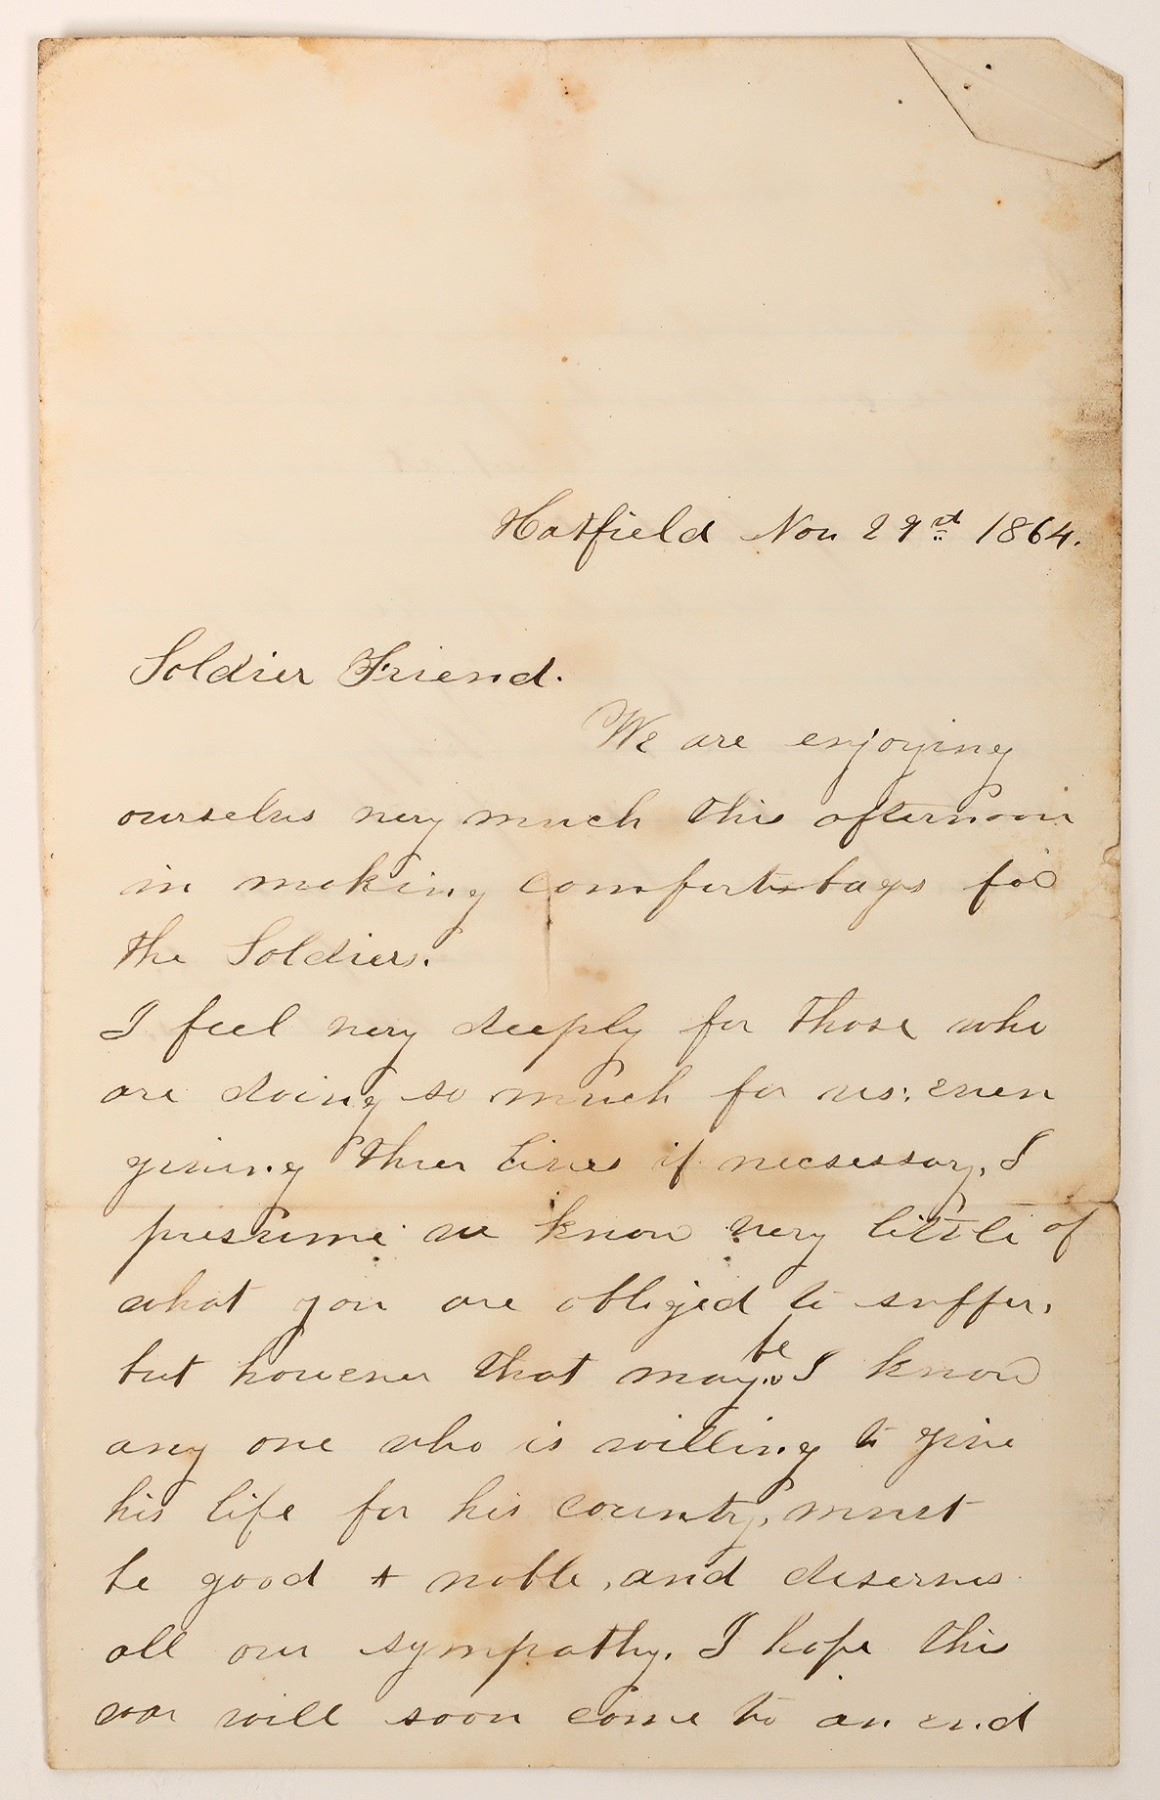 Hatfield Nov 29st 1864.
Soldier Friend.
We are enjoying
ourselves very much this afternoon
in making comforts bags for
the Soldiers.
I feel very deeply for those who
are doing so much for us; even
giving thier lives if necsessary, I
presume we know very little of
what you are obliged to suffer,
but however that may be I know
any one who is willing to give
his life for his county, must
be good & noble, and deserves
all our sympathy. I hope this
war will soon come to an end